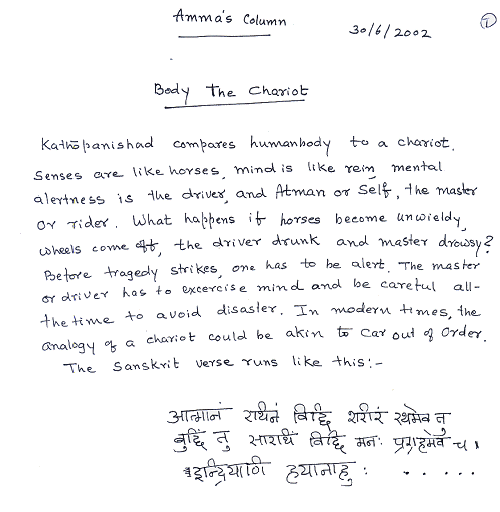 Amma's Column
30/6/2002
1
Body The Chariot
Kathōpanishad compares humanbody to a chariot.
Senses are like horses, mind is like rein, mental
alertness is the driver, and Atman or Self, the master
or rider. What happens if horses become unwieldy,
wheels come off, the driver drunk and master drowsy?
Before tragedy strikes, one has to be alert. The master
or driver has to excercise mind and be careful all-
the time to avoid disaster. In modern times, the
analogy of a chariot could be akin to Car out of Order.
The Sanskrit verse runs like this:-
आत्मानं रथिनं विद्धि शरीरं रथमेव तु
बुद्धिं तु सारथिं विद्धि मनः प्रग्रहमेव च ।
इन्द्रियाणि हयानाहुः . . . . .